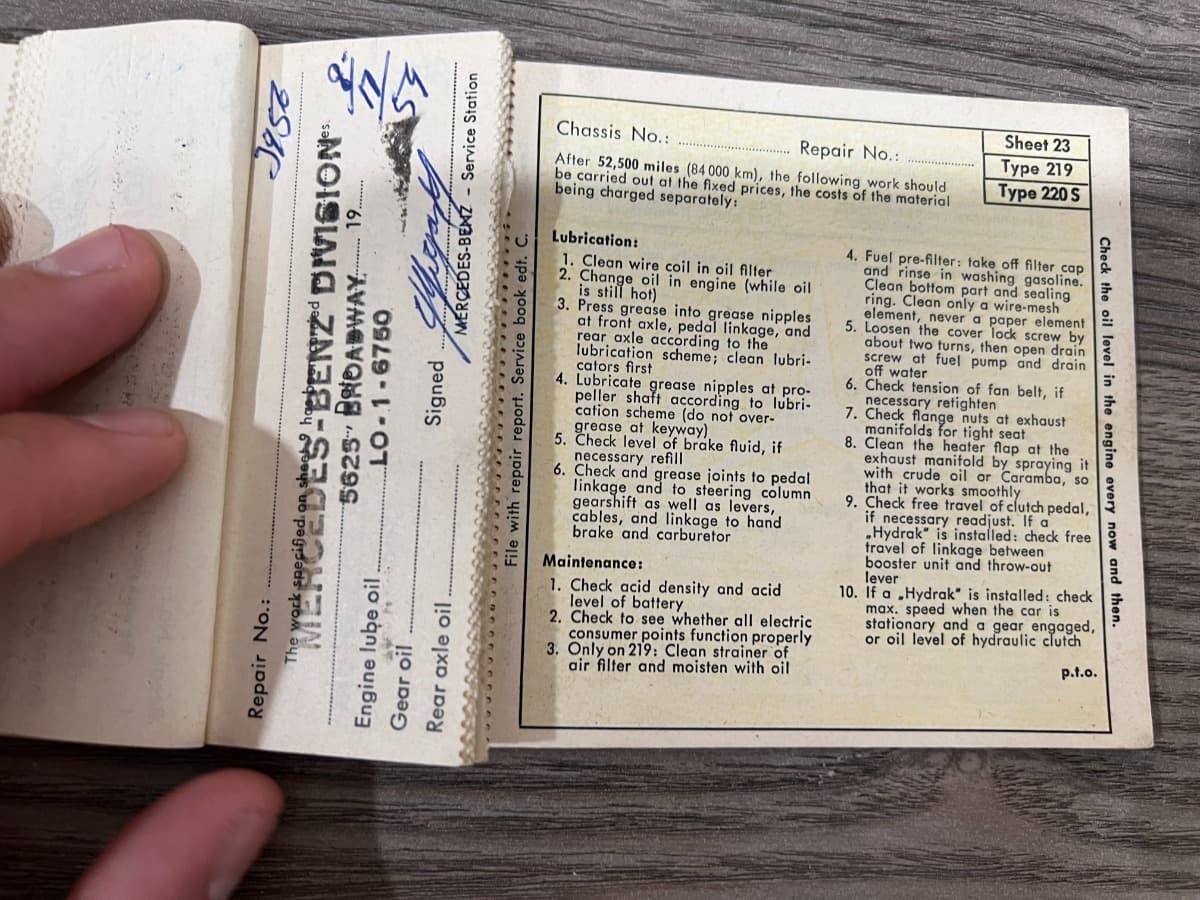 Repair No.:
The work specified on sheet 9 has been
MERCEDES-BENZ DIVISION
Date 19
5625 BROADWAY
Engine lube oil
LO-1-6750
Gear oil
Signed
Rear axle oil
MERCEDES-BENZ - Service Station
File with repair report. Service book edt. C.
Chassis No.: Repair No.:
Sheet 23
Type 219
Type 220 S
After 52,500 miles (84 000 km), the following work should
be carried out at the fixed prices, the costs of the material
being charged separately:
Lubrication:
1. Clean wire coil in oil filter
2. Change oil in engine (while oil
is still hot)
3. Press grease into grease nipples
at front axle, pedal linkage, and
rear axle according to the
lubrication scheme; clean lubri-
cators first
4. Lubricate grease nipples at pro-
peller shaft according to lubri-
cation scheme (do not over-
grease at keyway)
5. Check level of brake fluid, if
necessary refill
6. Check and grease joints to pedal
linkage and to steering column
gearshift as well as levers,
cables, and linkage to hand
brake and carburetor
Maintenance:
1. Check acid density and acid
level of battery
2. Check to see whether all electric
consumer points function properly
3. Only on 219: Clean strainer of
air filter and moisten with oil
4. Fuel pre-filter: take off filter cap
and rinse in washing gasoline.
Clean bottom part and sealing
ring. Clean only a wire-mesh
element, never a paper element
5. Loosen the cover lock screw by
about two turns, then open drain
screw at fuel pump and drain
off water
6. Check tension of fan belt, if
necessary retighten
7. Check flange nuts at exhaust
manifolds for tight seat
8. Clean the heater flap at the
exhaust manifold by spraying it
with crude oil or Caramba, so
that it works smoothly
9. Check free travel of clutch pedal,
if necessary readjust. If a
„Hydrak“ is installed: check free
travel of linkage between
booster unit and throw-out
lever
10. If a „Hydrak“ is installed: check
max. speed when the car is
stationary and a gear engaged,
or oil level of hydraulic clutch
p.t.o.
Check the oil level in the engine every now and then.